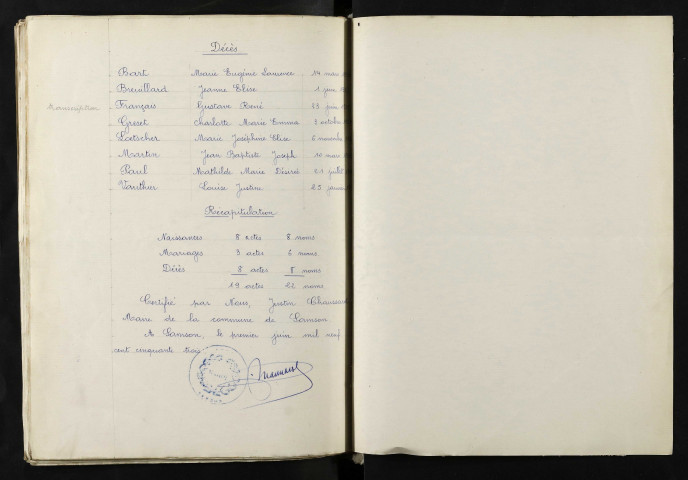 Décès
Bart Marie Eugénie Laurence 14 mars
Breuillard Jeanne Elise 1 juin
Transcription Français Gustave René 23 juin
Greset Charlotte Marie Emma 3 octobre
Loetscher Marie Joséphine Elise 6 novembre
Martin Jean Baptiste Joseph 10 mars
Paul Mathilde Marie Désirée 21 juillet
Vauthier Louise Justine 25 janvier
Récapitulation
Naissances 8 actes 8 noms
Mariages 3 actes 6 noms
Décès 8 actes 8 noms
19 actes 22 noms
Certifié par Nous, Justin
Maire de la commune de Samson
A Samson, le premier juin mil neuf
cent cinquante trois